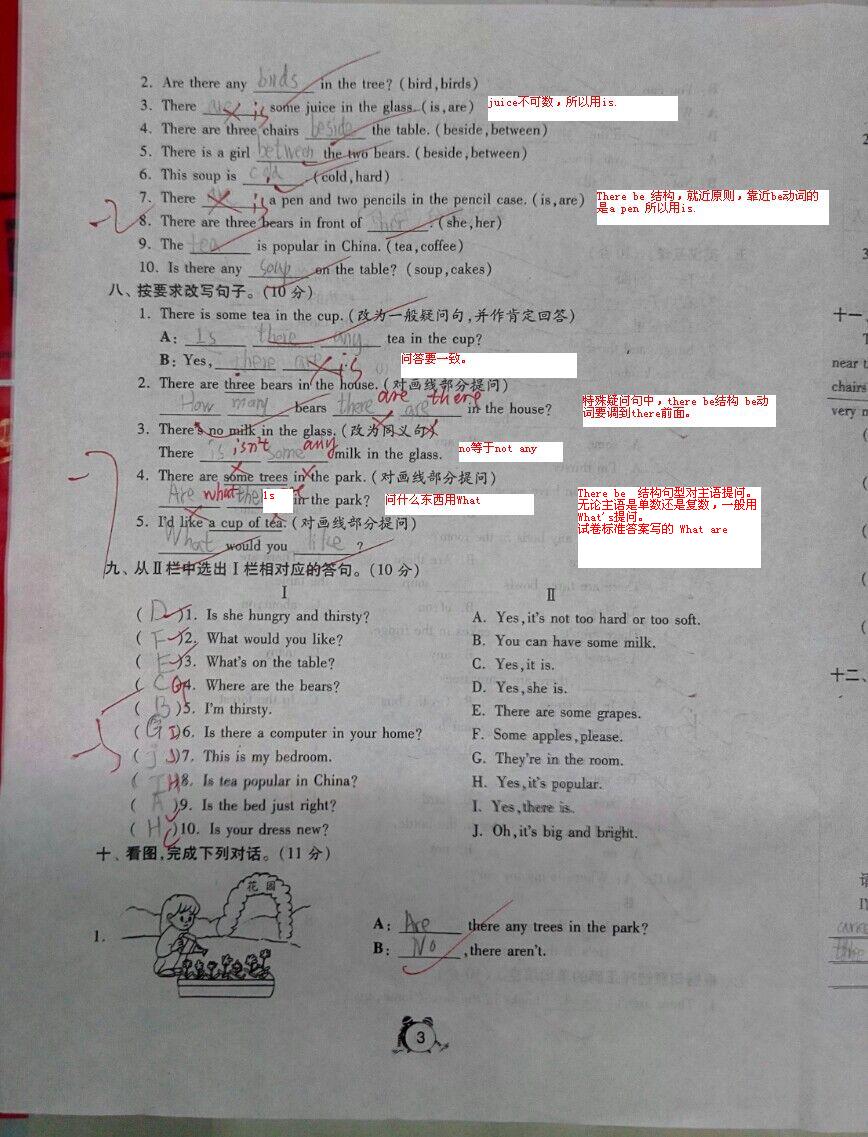 2. Are there any birds in the tree? (bird,birds)
3. There are is some juice in the glass. (is,are) juice不可数，所以用is.
4. There are three chairs beside the table. (beside,between)
5. There is a girl between the two bears. (beside,between)
6. This soup is cold. (cold,hard)
7. There is a pen and two pencils in the pencil case. (is,are) There be 结构，就近原则，靠近be动词的
是a pen 所以用is.
8. There are three bears in front of her. (she,her)
9. The tea is popular in China. (tea,coffee)
10. Is there any soup on the table? (soup,cakes)
八、按要求改写句子。(10分)
1. There is some tea in the cup. (改为一般疑问句,并作肯定回答)
A: Is there any tea in the cup?
B: Yes, there are is. 问答要一致。
2. There are three bears in the house. (对画线部分提问)
are there
How many bears there are in the house? 特殊疑问句中，there be结构 be动
词要调到there前面。
3. There's no milk in the glass. (改为同义句)
There is isn't some any milk in the glass. no等于not any
4. There are some trees in the park. (对画线部分提问)
Are what the is in the park? 问什么东西用What
There be 结构句型对主语提问。
无论主语是单数还是复数，一般用
What's提问。
试卷标准答案写的 What are
5. I'd like a cup of tea. (对画线部分提问)
What would you like?
九、从Ⅱ栏中选出Ⅰ栏相对应的答句。(10分)
Ⅰ Ⅱ
( D )1. Is she hungry and thirsty? A. Yes,it's not too hard or too soft.
( F )2. What would you like? B. You can have some milk.
( E )3. What's on the table? C. Yes,it is.
( C G )4. Where are the bears? D. Yes,she is.
( B )5. I'm thirsty. E. There are some grapes.
( G I )6. Is there a computer in your home? F. Some apples,please.
( j J )7. This is my bedroom. G. They're in the room.
( I H )8. Is tea popular in China? H. Yes,it's popular.
( A )9. Is the bed just right? I. Yes,there is.
( H C )10. Is your dress new? J. Oh,it's big and bright.
十、看图,完成下列对话。(11分)
花园
1.
A: Are there any trees in the park?
B: No ,there aren't.
3
十一、
near t
chairs
very m
十二、